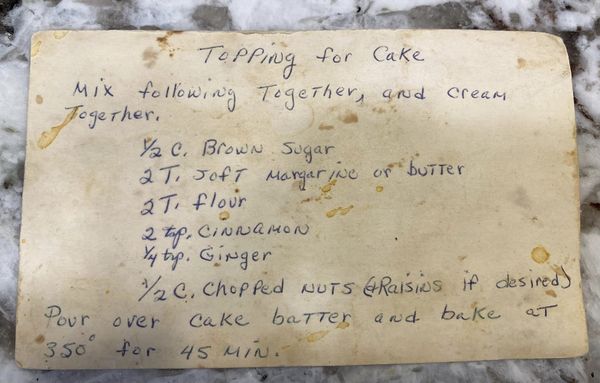 Topping for Cake
Mix following Together, and cream
Together.
1/2 C. Brown Sugar
2 T. Soft Margarine or butter
2 T. flour
2 tsp. Cinnamon
1/4 tsp. Ginger
1/2 C. Chopped nuts (& Raisins if desired)
Pour over cake batter and bake at
350° for 45 Min.